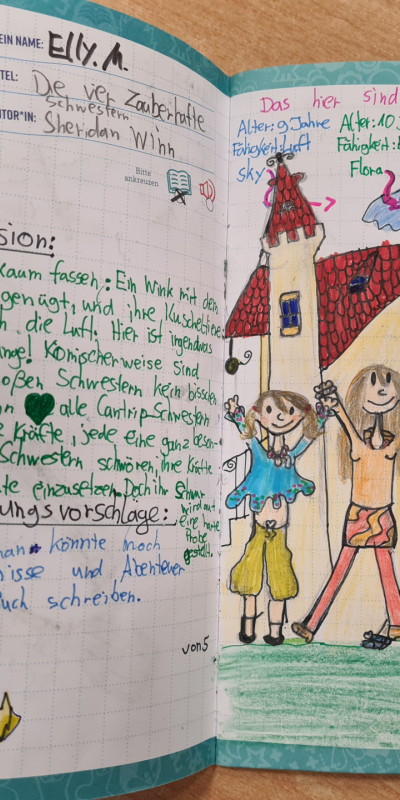 EIN NAME: Elly. M.
TEL: Die ver Zauberhafte
schwestern
TOR*IN: Sheridan Winn
Bitte
ankreuzen
sion:
kaum fassen: Ein Wink mit dem
genügt, und ihre Kuscheltiere
h die Luft. Hier ist irgendwas
ange! Komischerweise sind
oßen Schwestern kein bisschen
nn alle Cantrip-Schwestern
e Kräfte, jede eine ganz beson-
Schwestern schwören, ihre Kräfte
te einzusetzen. Doch ihr Schwur
wird auf
eine harte
Probe
gestellt.
ungsvorschläge:
man könnte noch
nisse und Abenteuer
uch schreiben.
von 5
Das hier sind
Alter: 9 Jahre
Fähigkeit: Luft
Sky
Alter: 10 J
Fähigkeit:
Flora